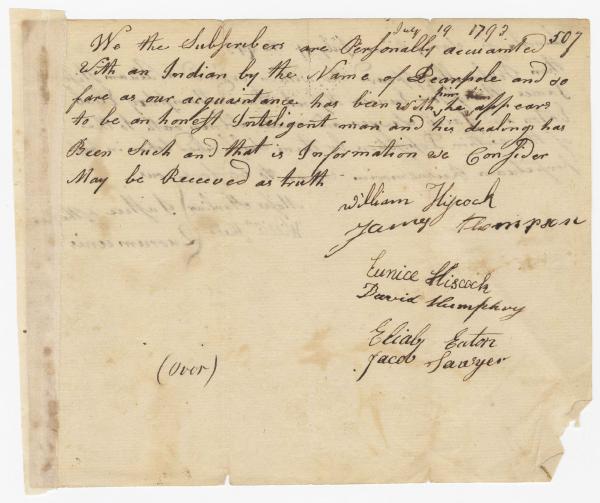 July 19 1793 507
We the Subscribers are Personally acquainted
With an Indian by the Name of Pearpole and so
fare as our acquaintance has been with him he appears
to be an honest Inteligent man and his dealings has
Been Such and that is Information we Consider
May be Received as truth
William Hiscock
James thompson
Eunice Hiscock
David Humphry
Eliab Eaton
Jacob Sawyer
(over)